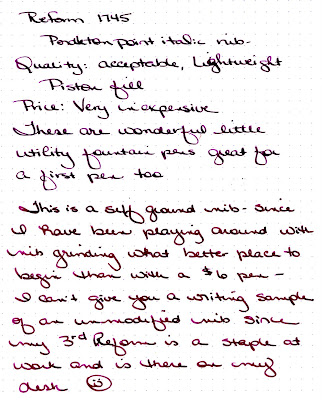 Reform 1745
Pendleton point italic nib-
Quality: acceptable, Lightweight
Piston fill
Price: Very inexpensive
These are wonderful little
utility fountain pens great for
a first pen too
This is a self ground nib - since
I have been playing around with
nib grinding what better place to
begin than with a $6 pen -
I can't give you a writing sample
of an unmodified nib since
my 3rd Reform is a staple at
work and is there on my
desk ☺